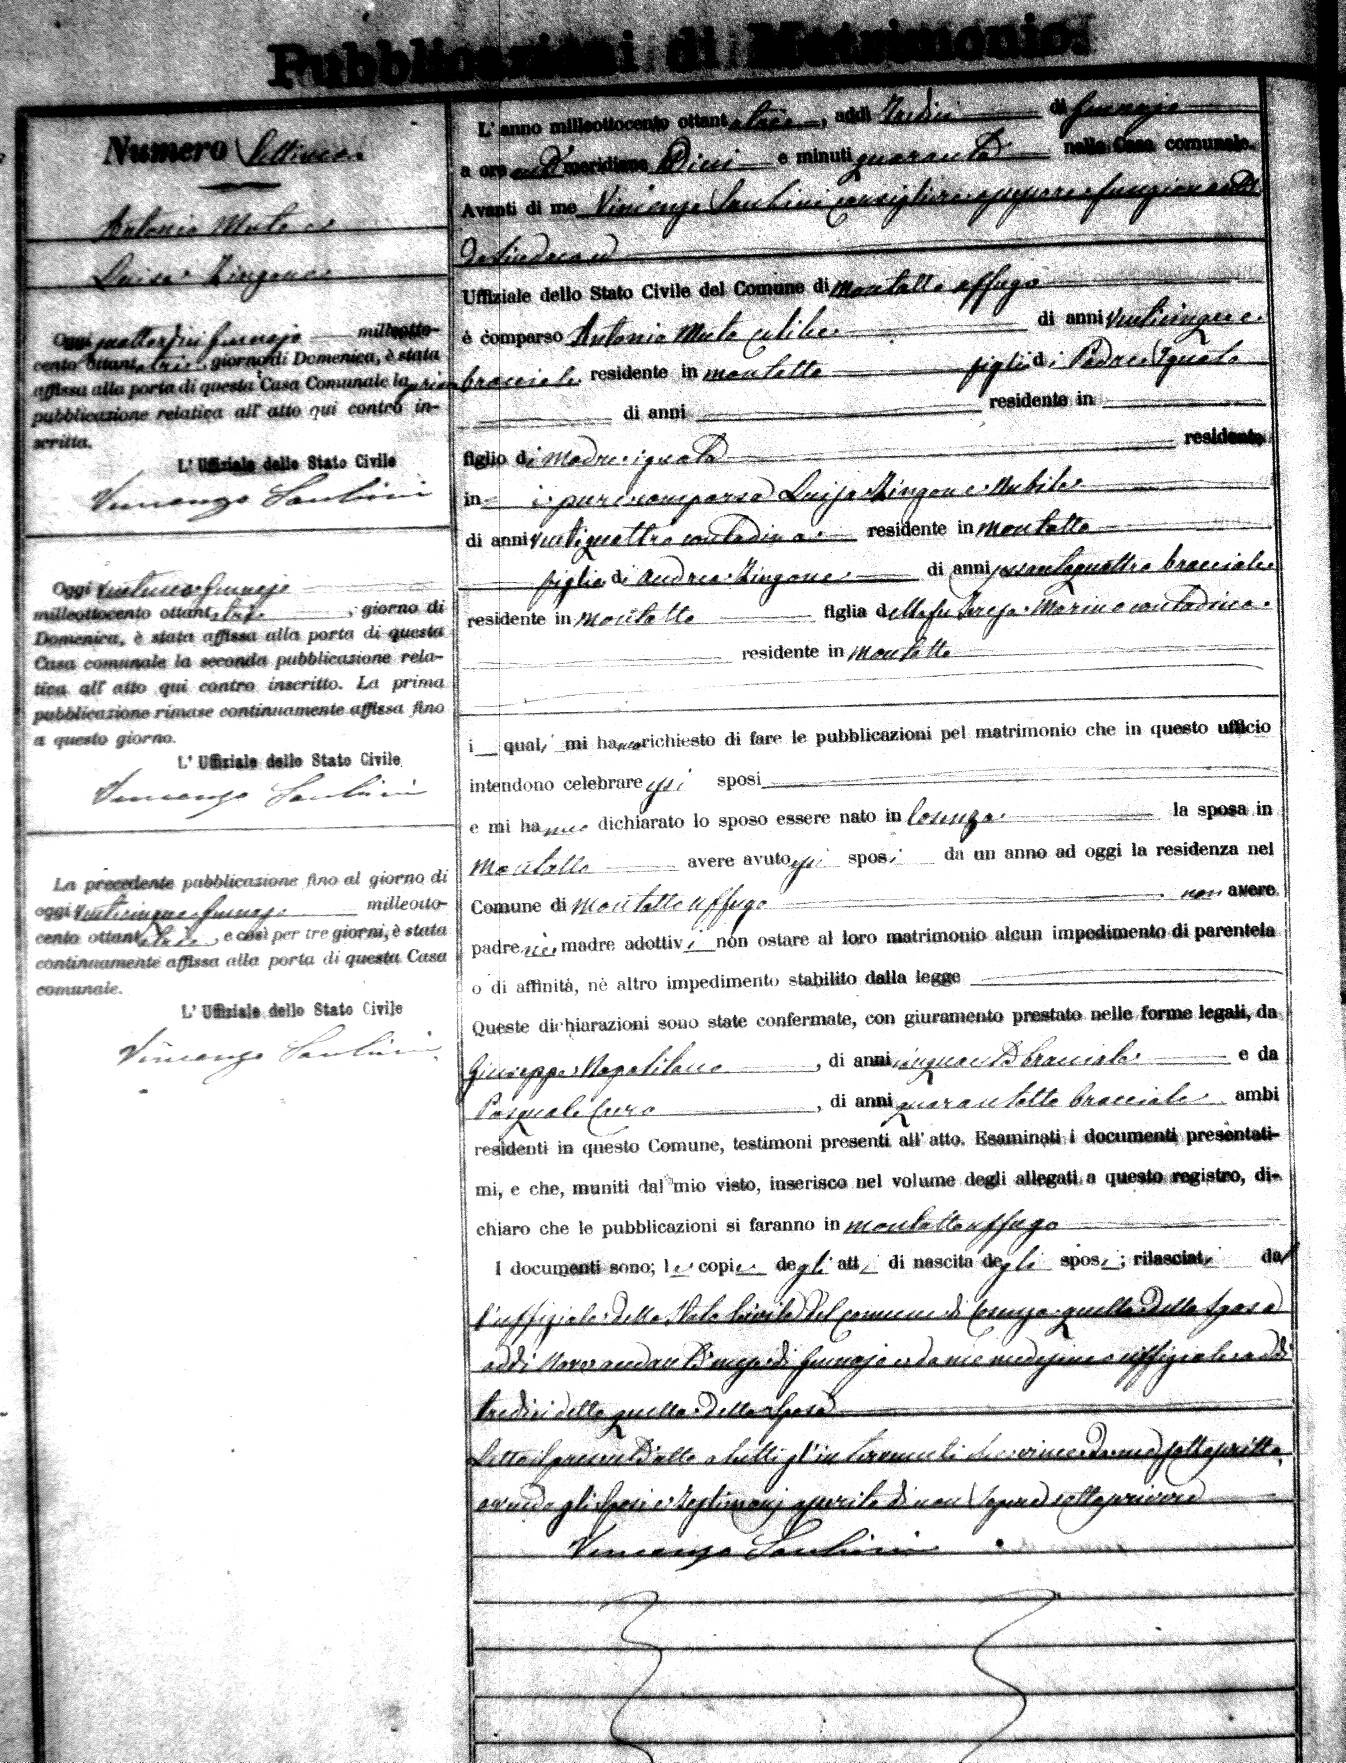 Pubblicazioni di Matrimonio.
Numero Settimo
Antonio Muto e
Luisa Zingone
Oggi quattordici Gennajo milleotto-
cento ottantatrè, giorno di Domenica, è stata
affissa alla porta di questa Casa Comunale la prima
pubblicazione relativa all' atto qui contro in-
scritta.
L' Uffiziale dello Stato Civile
Vincenzo Santini
Oggi ventuno Gennajo
milleottocento ottantatrè, giorno di
Domenica, è stata affissa alla porta di questa
Casa comunale la seconda pubblicazione rela-
tiva all' atto qui contro inscritto. La prima
pubblicazione rimase continuamente affissa fino
a questo giorno.
L' Uffiziale dello Stato Civile
Vincenzo Santini
La precedente pubblicazione fino al giorno di
oggi venticinque Gennajo milleotto-
cento ottantatrè, e così per tre giorni, è stata
continuamente affissa alla porta di questa Casa
comunale.
L' Uffiziale dello Stato Civile
Vincenzo Santini
L' anno milleottocento ottantatrè, addì Tredici di Gennajo
a ore antimeridiane Dieci e minuti quaranta nella Casa comunale.
Avanti di me Vincenzo Santini consigliere funzionante
da Sindaco
Uffiziale dello Stato Civile del Comune di Montalto Uffugo
è comparso Antonio Muto celibe di anni venticinque
bracciale residente in Montalto figlio di Padre Ignoto
di anni residente in
figlio di Madre ignota residente
in è pure comparsa Luisa Zingone Nubile
di anni ventiquattro contadina residente in Montalto
figlia di Andrea Zingone di anni sessantaquattro bracciale
residente in Montalto figlia della fu Teresa Marino contadina
residente in Montalto
i quali mi hanno richiesto di fare le pubblicazioni pel matrimonio che in questo ufficio
intendono celebrare essi sposi
e mi hanno dichiarato lo sposo essere nato in Cosenza la sposa in
Montalto avere avuto essi sposi da un anno ad oggi la residenza nel
Comune di Montalto Uffugo non avere
padre nè madre adottivi non ostare al loro matrimonio alcun impedimento di parentela
o di affinità, nè altro impedimento stabilito dalla legge
Queste dichiarazioni sono state confermate, con giuramento prestato nelle forme legali, da
Giuseppe Napolitano, di anni cinquanta bracciale e da
Pasquale Curo, di anni quarantotto bracciale ambi
residenti in questo Comune, testimoni presenti all' atto. Esaminati i documenti presentati-
mi, e che, muniti dal mio visto, inserisco nel volume degli allegati a questo registro, di-
chiaro che le pubblicazioni si faranno in Montalto Uffugo
I documenti sono; le copie degli atti di nascita degli sposi; rilasciati dal
l'uffiziale dello Stato Civile del comune di Cosenza quella dello Sposo
addì Nove andante mese di Gennajo e da me medesimo uffiziale addì
tredici detto quella della Sposa
Letto il presente atto a tutti gl'intervenuti si è da me sottoscritto
avendo gli Sposi e Testimonj asserito di non sapere sottoscrivere
Vincenzo Santini